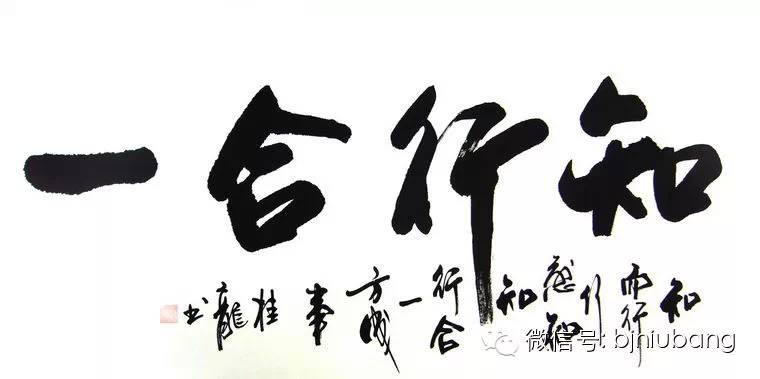 知行合一
知而行行感知知行合一方成事桂龍书
微信号: bjniubang